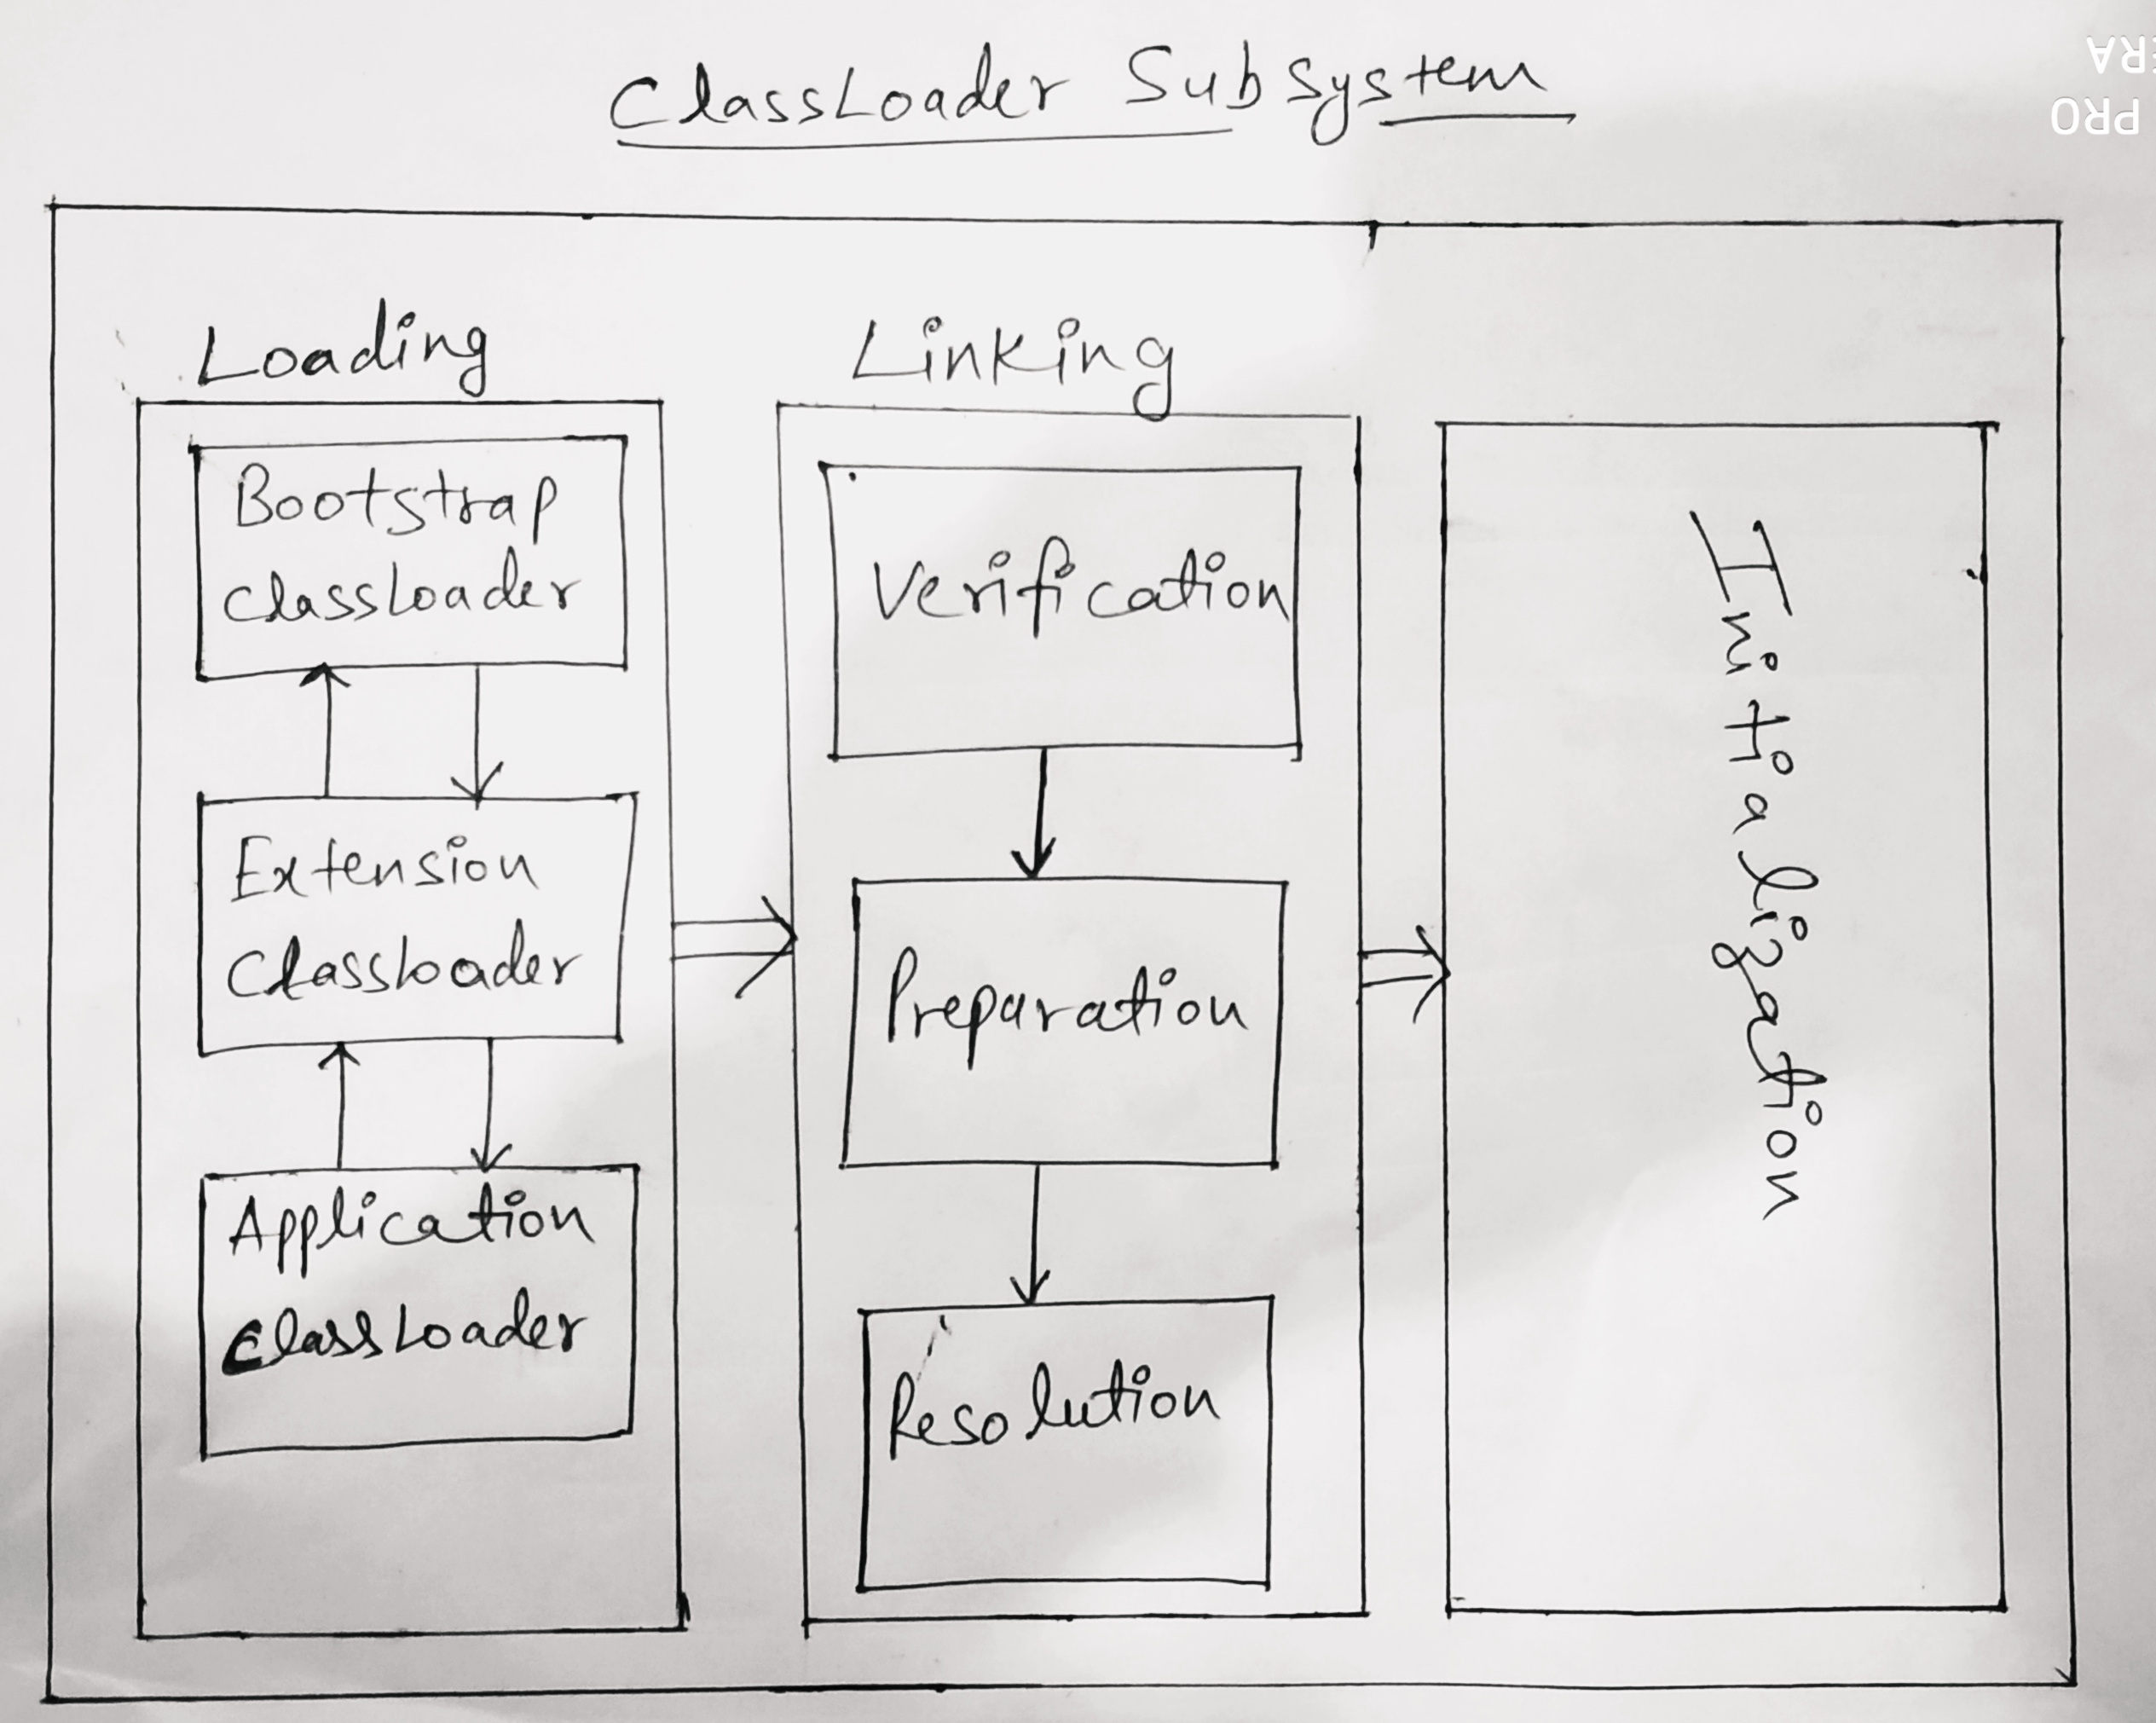 ClassLoader Subsystem
Loading
Bootstrap
ClassLoader
Extension
ClassLoader
Application
ClassLoader
Linking
Verification
Preparation
Resolution
Initialization
PRO